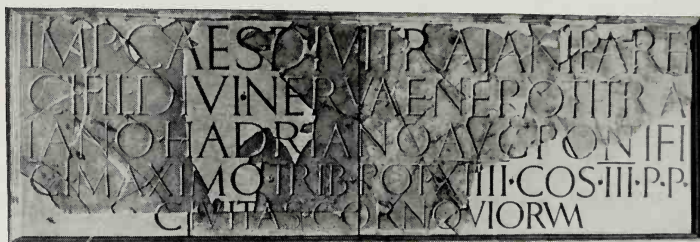 IMP·CAES·DIVI·TRAIANI·PARTHI
CI·FIL·DIVI·NERVAE·NEPOTI·TRA
IANO·HADRIANO·AVG·PONTIFI
CI·MAXIMO·TRIB·POT·XIIII·COS·III·P·P·
CIVITAS·CORNOVIORVM